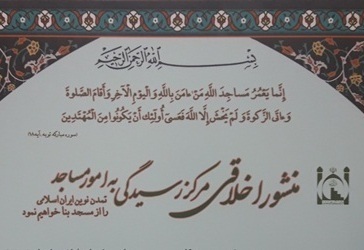 بسم الله الرحمن الرحیم
إِنَّمَا يَعْمُرُ مَسَاجِدَ اللَّهِ مَنْ ءَامَنَ بِاللَّهِ وَالْيَوْمِ الْآخِرِ وَأَقَامَ الصَّلَوةَ
وَءَاتَى الزَّكَوةَ وَلَمْ يَخْشَ إِلَّا اللَّهَ فَعَسَى أُولَئِكَ أَنْ يَكُونُوا مِنَ الْمُهْتَدِينَ
(سوره مبارکه توبه، آیه ۱۸)
منشور اخلاقی مرکز رسیدگی به امور مساجد
تمدن نوین ایران اسلامی
را از مسجد بنا خواهیم نمود